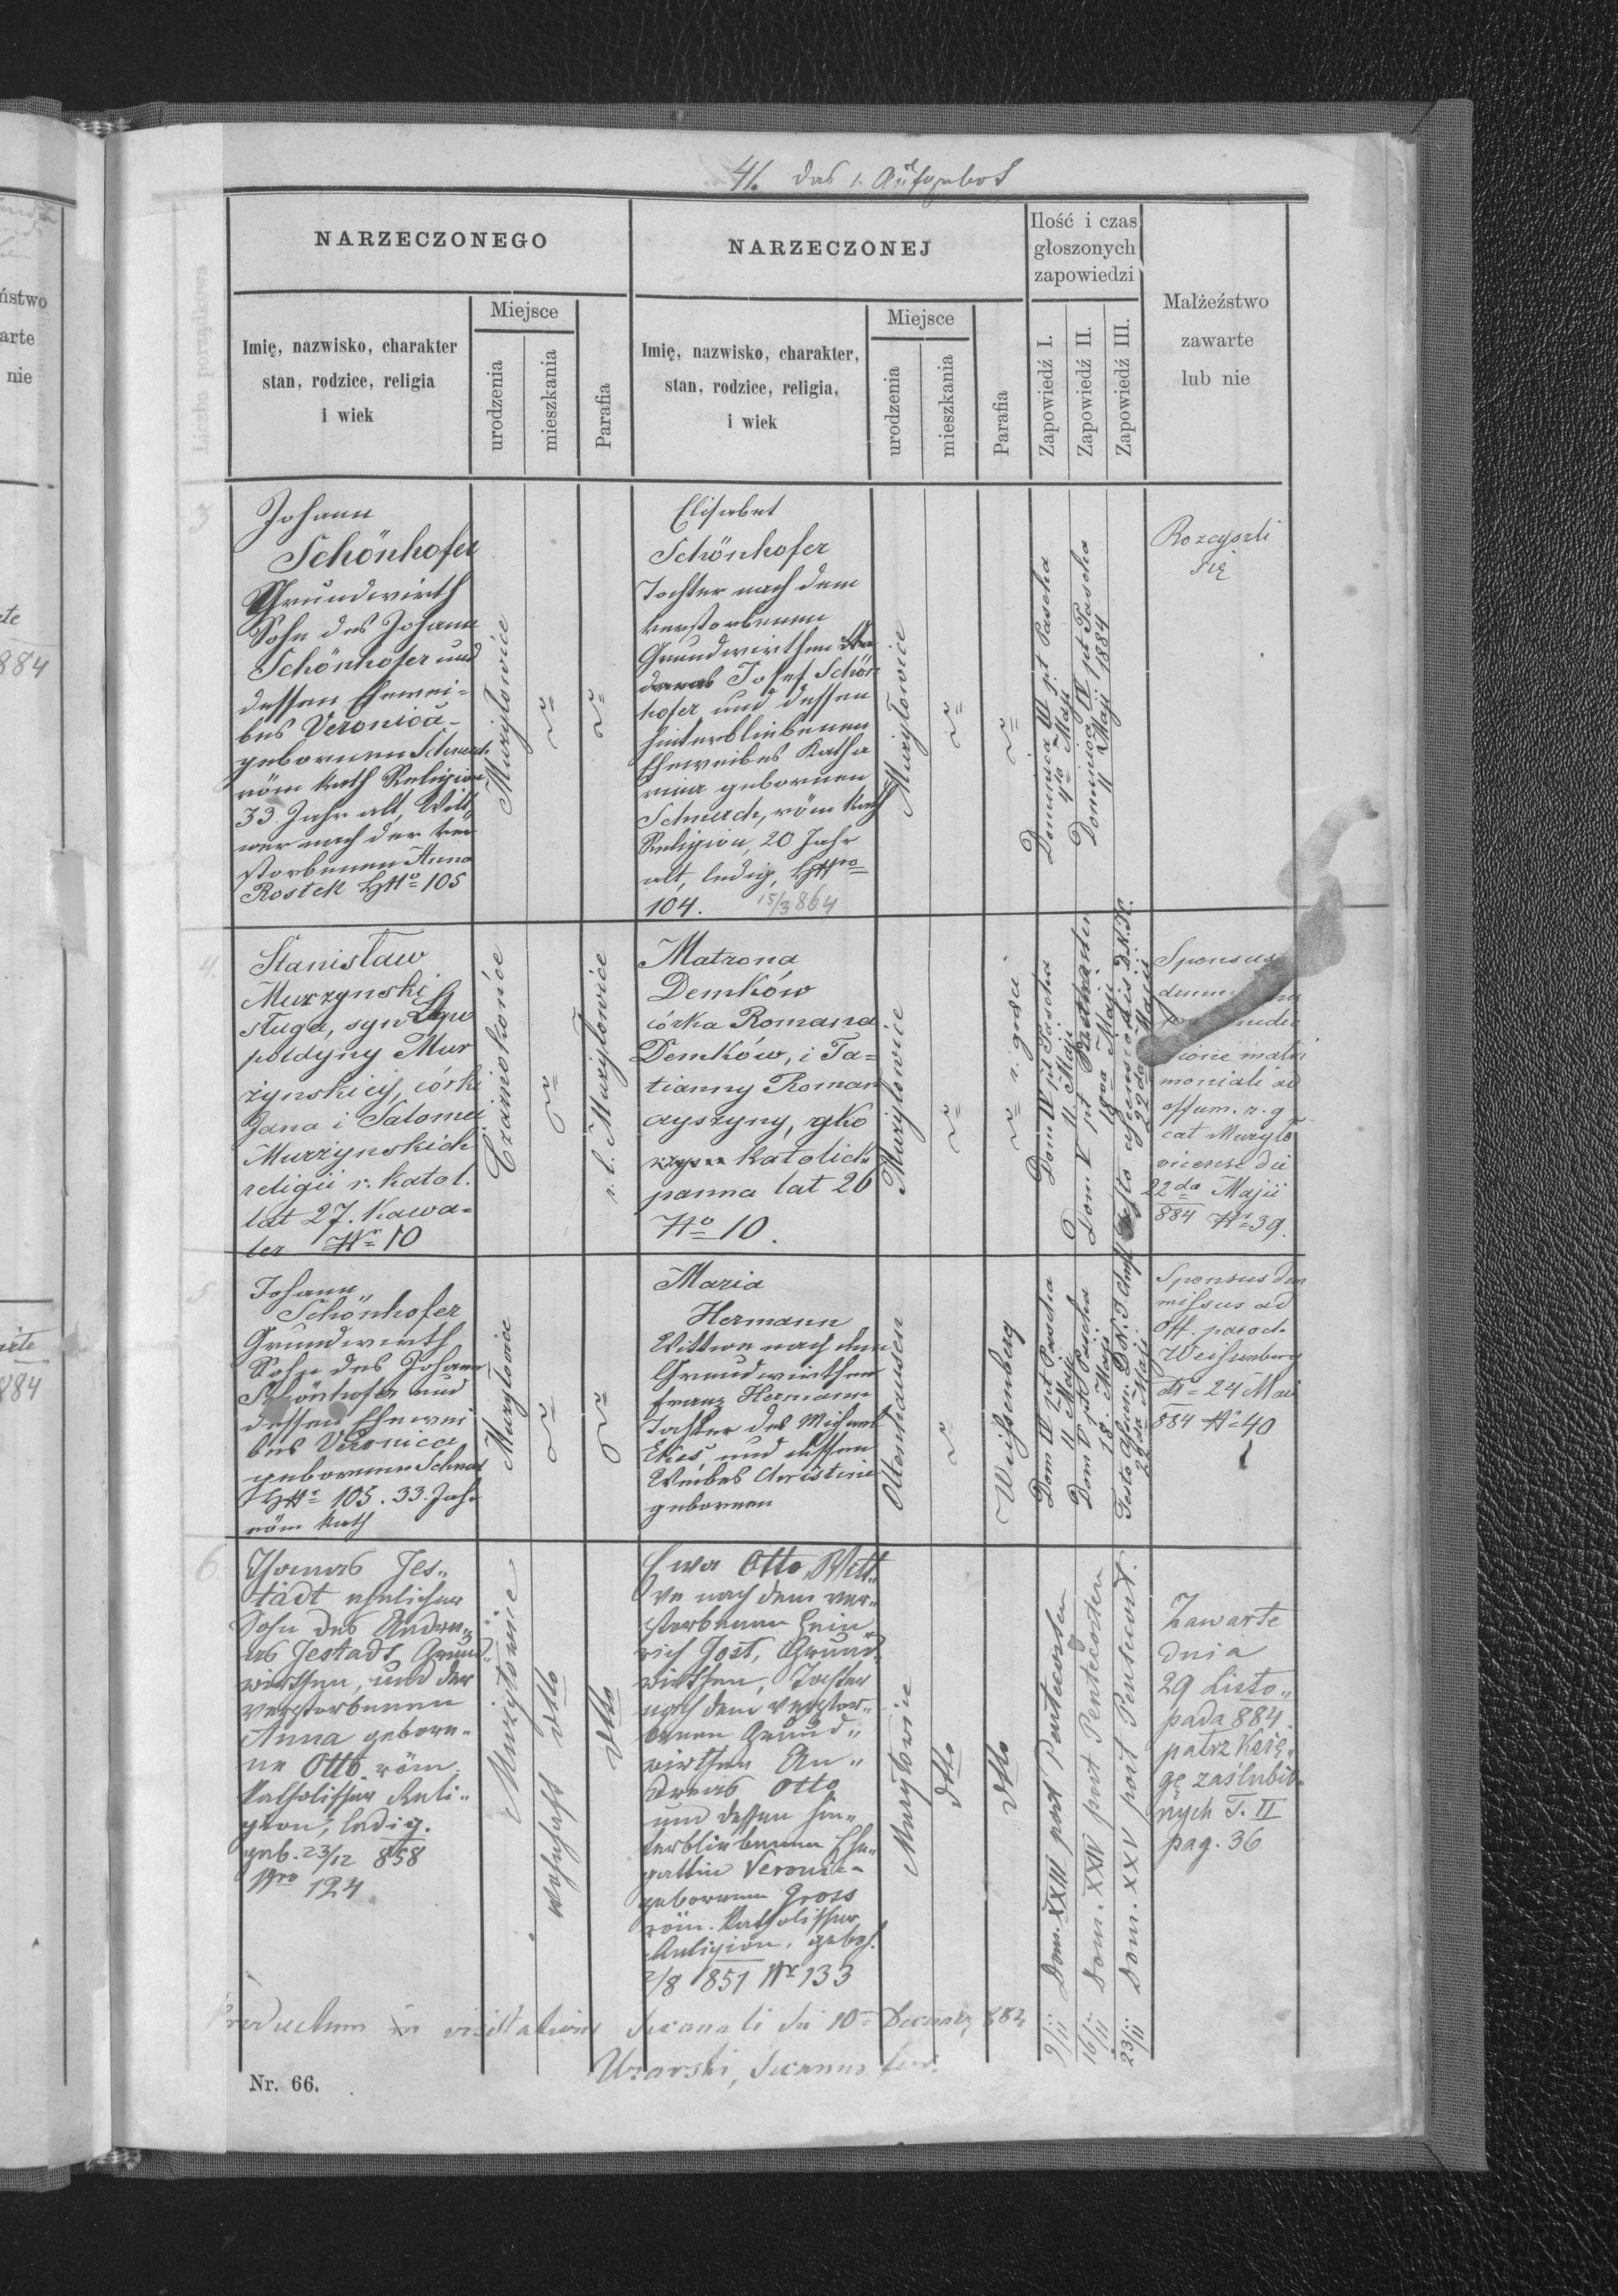 41. das 1. Aufgebot
NARZECZONEGO
NARZECZONEJ
Ilość i czas
głoszonych
zapowiedzi
Małżeźstwo
zawarte
lub nie
Liczba porządkowa
Imię, nazwisko, charakter
stan, rodzice, religia
i wiek
Miejsce
urodzenia
mieszkania
Parafia
Imię, nazwisko, charakter,
stan, rodzice, religia,
i wiek
Miejsce
urodzenia
mieszkania
Parafia
Zapowiedź I.
Zapowiedź II.
Zapowiedź III.
3
Johann
Schönhofer
Grundwirth
Sohn des Johann
Schönhofer und
dessen Ehewei-
bes Veronica
gebornen Schnerch
röm kath Religion
33. Jahr alt, Witt
wer nach der ver
storbenen Anna
Rostek HNo 105
Murzyłowice
Elisabet
Schönhofer
Tochter nach dem
verstorbenen
Grundwirthen
Josef Schön
hofer und dessen
hinterbliebenen
Eheweibes Katha
rina gebornen
Schnerch, röm kath
Religion, 20 Jahr
alt, ledig, HNro
104. 15/3 864
Murzyłowice
Dominica III pt Pascha
4ta Maji
Dominica IV pt Pascha
11 Maji 1884
Rozeyszli
się
4.
Stanisław
Murzynski
sługa, syn Leo
poldyny Mur
zynskiej, córki
Jana i Salomei
Murzynskich
religii r. katol.
lat 27. kawa-
ler Nr 10
Czarnokońce
r. l. Murzyłowice
Matrona
Demków
córka Romana
Demków, i Ta-
tianny Roman
czyszyny, gko
katolick
panna lat 26
No 10.
Murzyłowice
r. graci
Dom IV pt Pascha
11 Maji
Dom V pt
18va Maji
Festo Ascensionis D.N.
22da Maji
Sponsus
moniali ad
offum. r. g
cat Murzyło
vicense die
22da Majii
884 Nr 39.
5
Johann
Schönhofer
Grundwirth
Sohn des Johann
Schönhofer und
dessen Ehewei
bes Veronica
gebornen Schner
HNr 105. 33. Jahr
röm kath
Murzyłowice
Maria
Hermann
Wittwe nach dem
Grundwirthen
Franz Hermann
Tochter des Michael
und dessen
Weibes Christine
gebornen
Ottenhausen
Weißenberg
Dom IV pt Pascha
11 Maji
Dom V pt Pascha
18. Maji
Festo Ascen. D.N.J. Chr
22da Maji
Sponsus di
missus ad
Off. paroch.
Weissenberg
24 Maii
884 Nr 40
6.
Thomas Jes„
tädt ehelicher
Sohn des Andre„
as Jestädt, Grund„
wirthen, und der
verstorbenen
Anna gebore„
ne Otto röm.
katholischer Reli„
gion, ledig.
geb. 23/12 858
Nro 124
Murzyłowice
wohnhaft dtto
dtto
Ewa Otto, Witt„
we nach dem ver„
storbenen Hein„
rich Jost, Grund„
wirthen, Tochter
nach dem verstor„
benen Grund„
wirthen An„
dreas Otto
und dessen hin„
terbliebenen Ehe„
gattin Veronica
gebornen Gross
röm. katholischer
Religion, geboh.
2/8 1851 Nr 133
Murzyłowice
dtto
dtto
9/11 Dom. XXIII post Pentecosten
16/11 Dom. XXIV post Pentecosten
23/11 Dom. XXV post Pentecost.
Zawarte
dnia
29 Listo„
pada 884.
patrz Księ„
gę zaślubio„
nych T. II
pag. 36
Productum in visitatione decanali die 10 Decembr 884
Uzarski, decanus for.
Nr. 66.